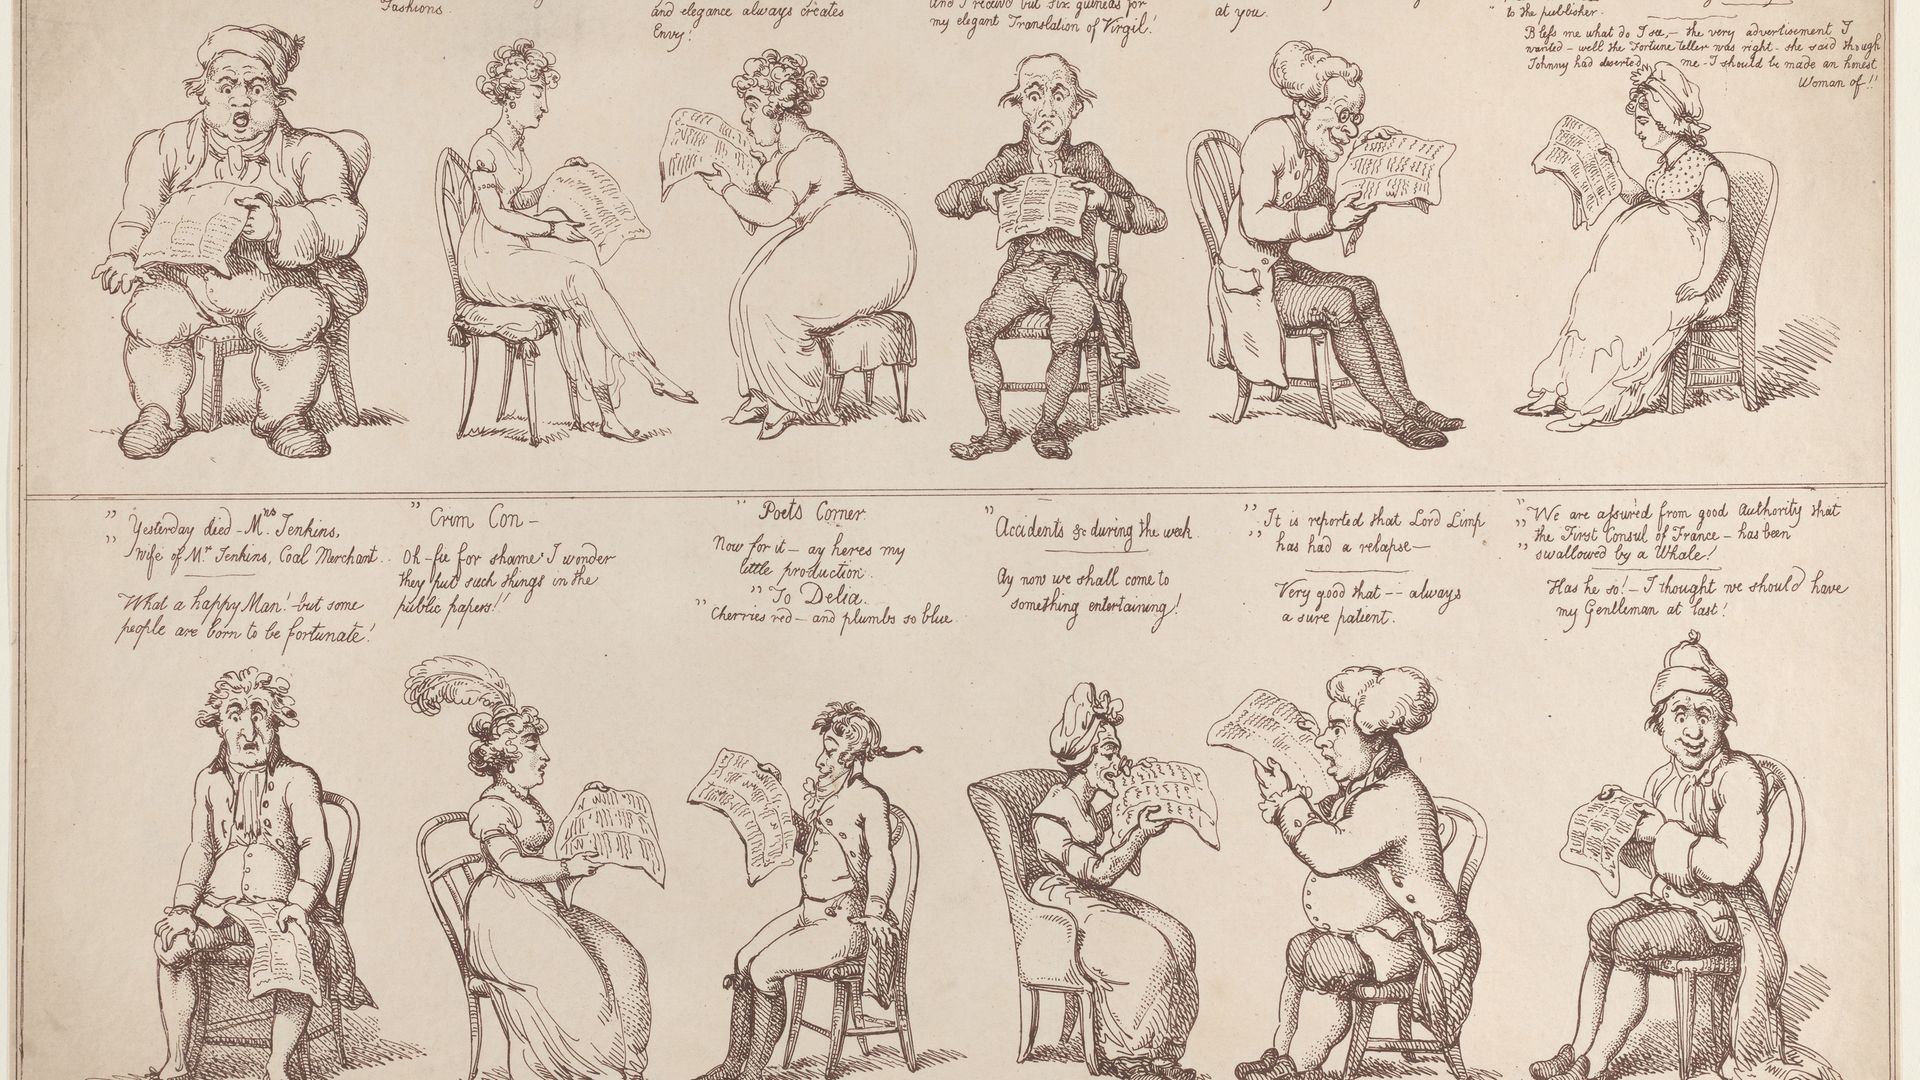 Fashions.
and elegance always creates
Envy!
and I receiv'd but six guineas for
my elegant Translation of Virgil!
at you.
" to the publisher.
Bless me what do I see,- the very advertisement I
wanted - well the Fortune teller was right - she said though
Johnny had deserted me - I should be made an honest
Woman of!!
" Yesterday died - Mrs Jenkins,
" wife of Mr Jenkins, Coal Merchant.
What a happy Man! but some
people are born to be fortunate!
" Crim Con -
Oh - fie for shame! I wonder
they put such things in the
public papers!!
" Poets Corner.
Now for it - ay heres my
little production.
" To Delia.
" Cherries red - and plumbs so blue.
" Accidents &c during the week.
Ay now we shall come to
something entertaining!
" It is reported that Lord Limp
" has had a relapse -
Very good that -- always
a sure patient.
" We are assured from good Authority that
" the First Consul of France - has been
" swallowed by a Whale!
Has he so! - I thought we should have
my Gentleman at last!